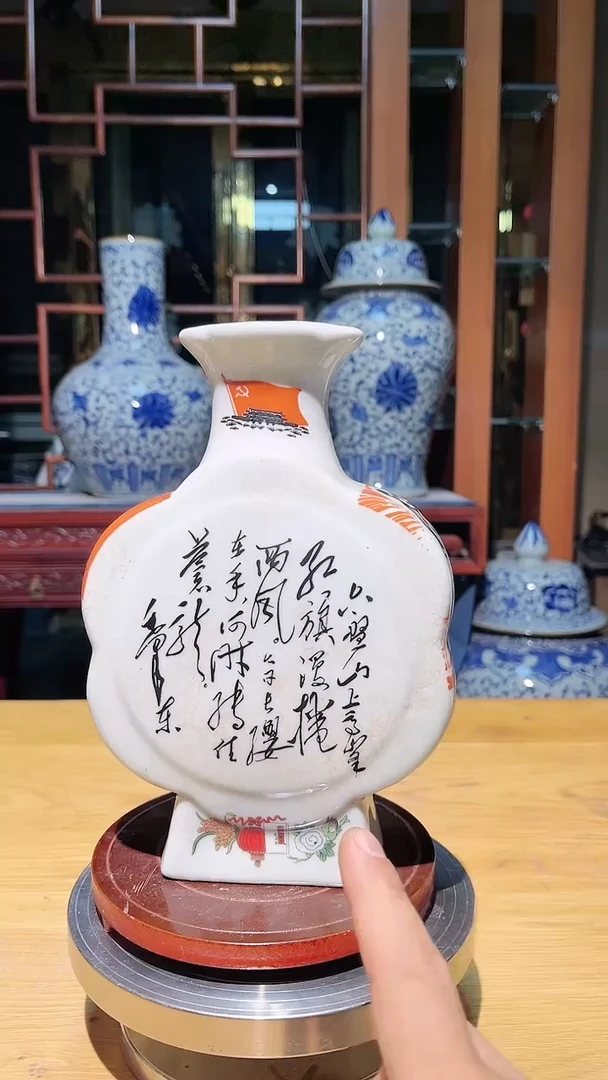 六盘山上高峯
红旗漫捲
西风。今日长缨
在手，何时缚住
蒼龙。
毛泽东